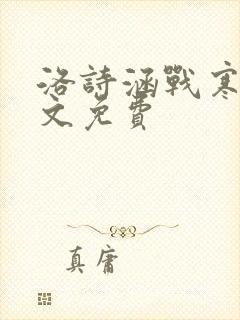 洛詩涵戰寒
文免費
真庸